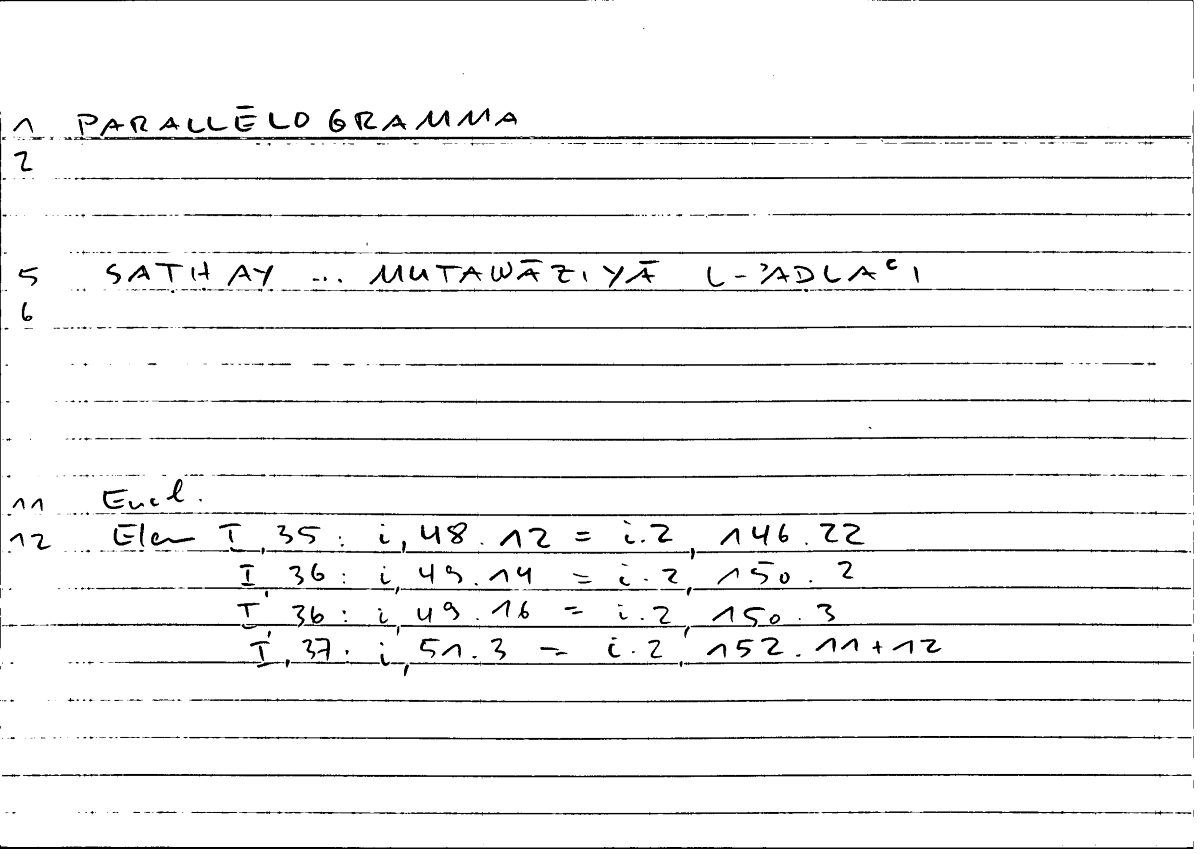 1 PARALLĒLOGRAMMA
2
5 SATHAY ... MUTAWĀZIYĀ L-ʾADLAʿI
6
11 Eucl.
12 Elem I, 35: i, 48.12 = i.2, 146.22
I, 36: i, 49.14 = i.2, 150.2
I, 36: i, 49.16 = i.2, 150.3
I, 37: i, 51.3 = i.2, 152.11+12